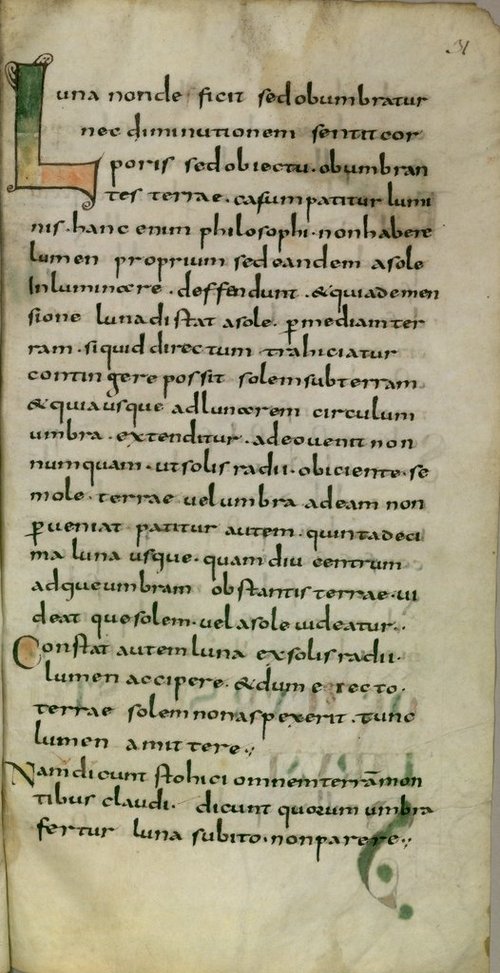 31
Luna non de ficit sed obumbratur
nec diminutionem sentit cor
poris sed obiectu . obumbran
tes terrae . casum patitur lumi
nis . hanc enim philosophi . non habere
lumen proprium sed eandem a sole
Inluminare . deffendunt . & quia demen
sione luna distat a sole . p̱ mediam ter
ram . si quid directum trahiciatur
contingere possit solem sub terram
& quia usque ad lunarem circulum
umbra . extenditur . adeo uenit non
numquam . ut solis radii . obiciente . se
mole . terrae uel umbra ad eam non
p̱ueniat patitur autem . quinta deci
ma luna usque . quam diu centrum
adque umbram obstantis terrae . ui
deat que solem . uel a sole uideatur .,
Constat autem luna ex solis radii .
lumen accipere . & dum e recto .
terrae solem non aspexerit . tunc
lumen amittere .,
Nam dicunt stohici omnem terrā mon
tibus claudi . dicunt quorum umbra
fertur luna subito . non parere .,